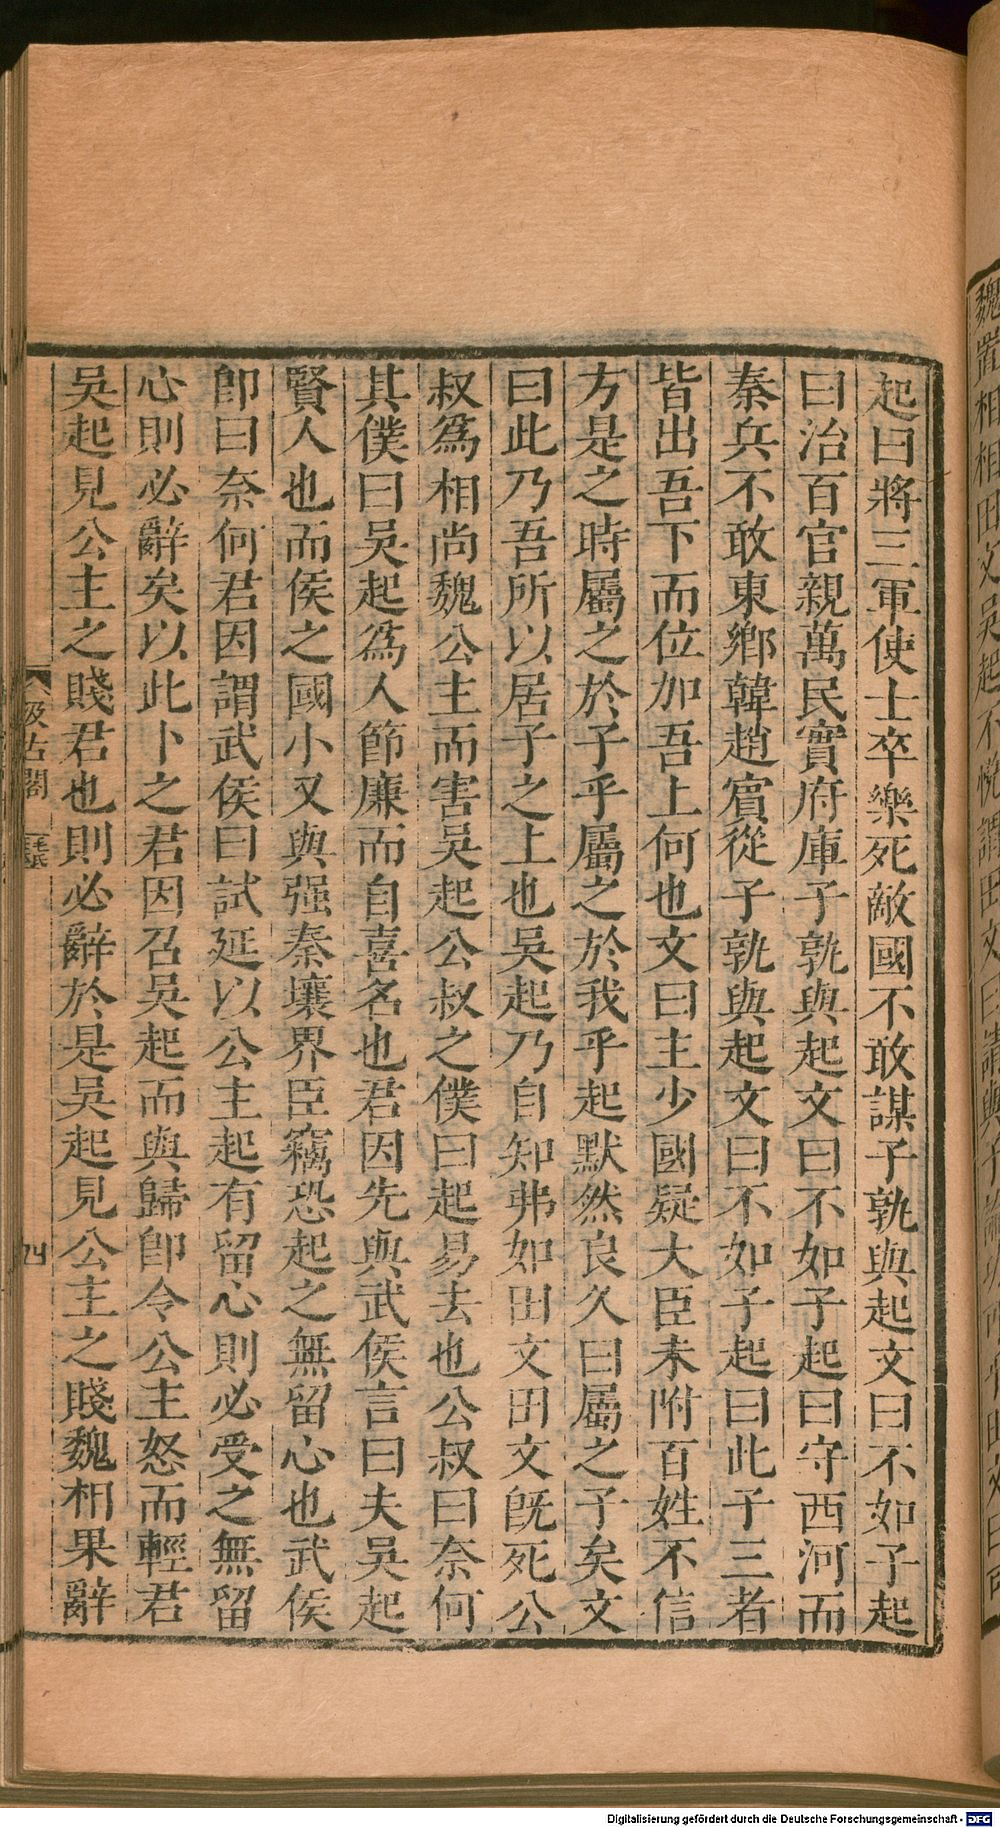 起曰將三軍使士卒樂死敵國不敢謀子孰與起文曰不如子起
曰治百官親萬民實府庫子孰與起文曰不如子起曰守西河而
秦兵不敢東鄉韓趙賓從子孰與起文曰不如子起曰此子三者
皆出吾下而位加吾上何也文曰主少國疑大臣未附百姓不信
方是之時屬之於子乎屬之於我乎起默然良久曰屬之子矣文
曰此乃吾所以居子之上也吳起乃自知弗如田文田文旣死公
叔爲相尚魏公主而害吳起公叔之僕曰起易去也公叔曰奈何
其僕曰吳起爲人節廉而自喜名也君因先與武侯言曰夫吳起
賢人也而侯之國小又與强秦壤界臣竊恐起之無留心也武侯
卽曰奈何君因謂武侯曰試延以公主起有留心則必受之無留
心則必辭矣以此卜之君因召吳起而與歸卽令公主怒而輕君
吳起見公主之賤君也則必辭於是吳起見公主之賤魏相果辭
汲古閣
毛氏
四
魏置相相田文吳起不悅謂田文曰請與子論功可乎田文曰可
Digitalisierung gefördert durch die Deutsche Forschungsgemeinschaft - DFG